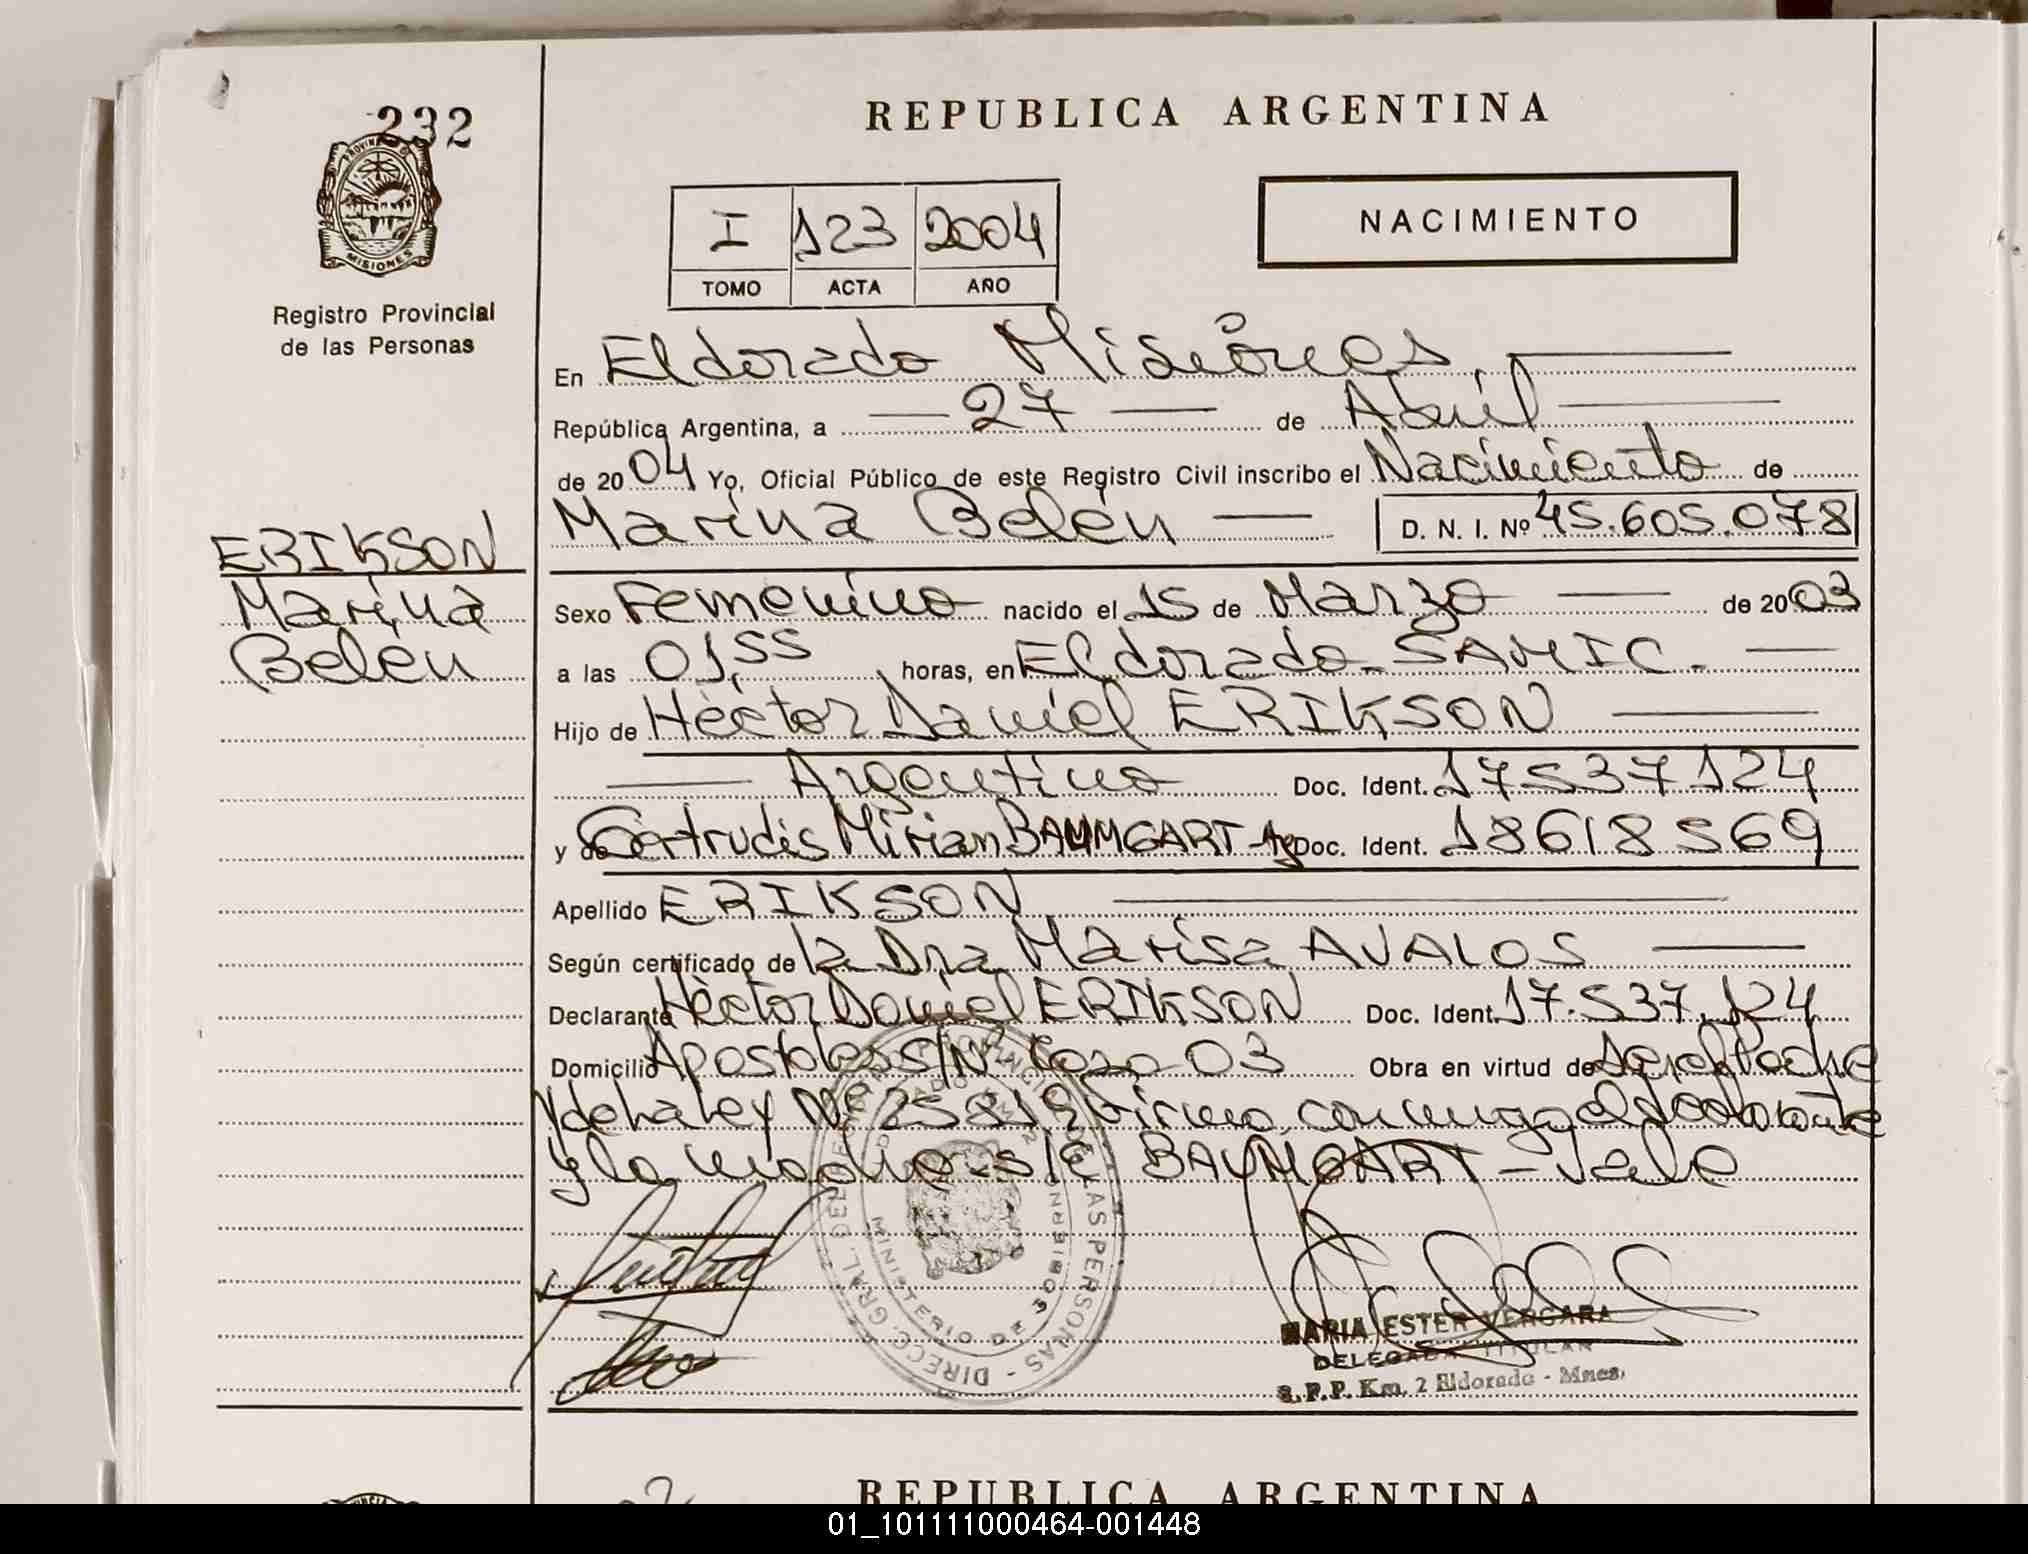 232
PROVINCIA DE
MISIONES
Registro Provincial
de las Personas
ERIKSON
Marina
Belén
REPUBLICA ARGENTINA
NACIMIENTO
I 123 2004
TOMO ACTA AÑO
En Eldorado Misiones
República Argentina, a 27 de Abril
de 2004 Yo, Oficial Público de este Registro Civil inscribo el Nacimiento de
Marina Belén D. N. I. Nº 45.605.078
Sexo Femenino nacido el 15 de Marzo de 2003
a las 01,55 horas, en Eldorado - SAMIC.
Hijo de Héctor Daniel ERIKSON
Argentino Doc. Ident. 17537124
y de Gertrudis Mirian BAUMGART - Ag Doc. Ident. 18618569
Apellido ERIKSON
Según certificado de la Dra Marisa AVALOS
Declarante Héctor Daniel ERIKSON Doc. Ident. 17.537.124
Domicilio Apostoles S/Nº Casa 03 Obra en virtud de ser el Padre
y de la Ley Nº 25819 Firma conmigo el declarante
y la madre s/r BAUMGART - Vale
DIRECC. GRAL. DEL REGISTRO PROVINCIAL DE LAS PERSONAS
MINISTERIO DE GOBIERNO
MARIA ESTER VERGARA
DELEGADA TITULAR
R.P.P. Km. 2 Eldorado - Mnes.
REPUBLICA ARGENTINA
01_101111000464-001448